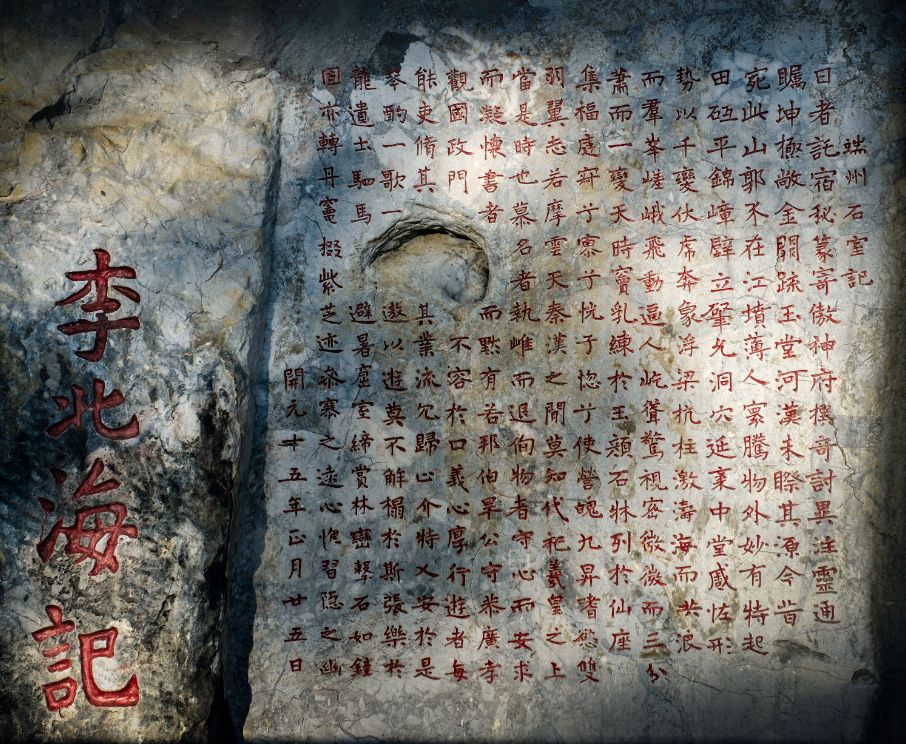 端州石室記
日者託宿秘篆寄傲神府樸奇討異注靈通
矚坤極敞金闕疏玉堂河漢未睽其源今昔
宛此山郭不在江墳薄人寰騰物外妙有特起
田砥平錦嶂壁立肇允洞穴延袤中堂感怪形
勢以千變伏虎奔象浮梁抗柱激濤海而洪浪
而羣峯嵯峨飛動逼人屹聳驚視密微微而三分
蕭而一變天時竇乳練於玉顏石牀列於仙座
集福庭寂兮寥兮恍兮惚兮使營魄九昇嗜慾雙
羽翼忽若摩雲天秦漢之間莫知代祀羲皇之上
當是時也慕名者執雌而退徇物者守心而安求
而凝懷書者而默有若邦伯畢公守恭廣孝
觀國政門不容於口義心厚行遊者每
能吏脩其其業流冗歸心介特乂安於是
琴酌一歌一遨以遊莫不解榻於斯張樂於
龍遺士駟馬避暑窟室締賞林巒擊石如鐘
固亦轉丹竈掇紫芝迹參寥之遠心怳習隱之幽
開元十五年正月廿五日
李北海記